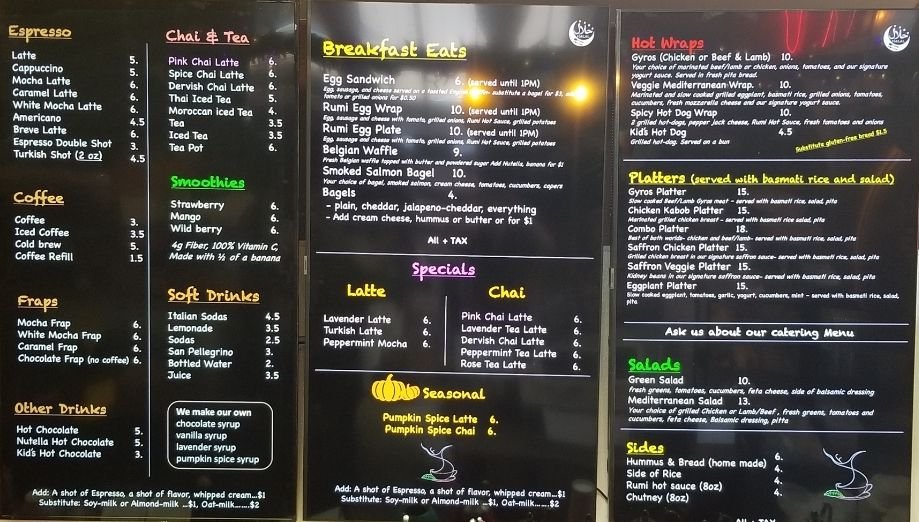 Espresso
Latte 5.
Cappuccino 5.
Mocha Latte 6.
Caramel Latte 6.
White Mocha Latte 6.
Americano 4.5
Breve Latte 6.
Espresso Double Shot 3.
Turkish Shot (2 oz) 4.5
Coffee
Coffee 3.
Iced Coffee 3.5
Cold brew 5.
Coffee Refill 1.5
Fraps
Mocha Frap 6.
White Mocha Frap 6.
Caramel Frap 6.
Chocolate Frap (no coffee) 6.
Other Drinks
Hot Chocolate 5.
Nutella Hot Chocolate 5.
Kid's Hot Chocolate 3.
Chai & Tea
Pink Chai Latte 6.
Spice Chai Latte 6.
Dervish Chai Latte 6.
Thai Iced Tea 5.
Moroccan iced Tea 4.
Tea 3.5
Iced Tea 3.5
Tea Pot 6.
Smoothies
Strawberry 6.
Mango 6.
Wild berry 6.
4g Fiber, 100% Vitamin C,
Made with ½ of a banana
Soft Drinks
Italian Sodas 4.5
Lemonade 3.5
Sodas 2.5
San Pellegrino 3.
Bottled Water 2.
Juice 3.5
We make our own
chocolate syrup
vanilla syrup
lavender syrup
pumpkin spice syrup
Add: A shot of Espresso, a shot of flavor, whipped cream...$1
Substitute: Soy-milk or Almond-milk ...$1, Oat-milk.......$2
Breakfast Eats
Egg Sandwich 6. (served until 1PM)
Egg, sausage, and cheese served on a toasted English substitute a bagel for $3,
tomato or grilled onions for $0.50
Rumi Egg Wrap 10. (served until 1PM)
Egg, sausage and cheese with tomato, grilled onions, Rumi Hot Sauce, grilled potatoes
Rumi Egg Plate 10. (served until 1PM)
Egg, sausage and cheese with tomato, grilled onions, Rumi Hot Sauce, grilled potatoes
Belgian Waffle 9.
Fresh Belgian waffle topped with butter and powdered sugar Add Nutella, banana for $1
Smoked Salmon Bagel 10.
Your choice of bagel, smoked salmon, cream cheese, tomatoes, cucumbers, capers
Bagels 4.
- plain, cheddar, jalapeno-cheddar, everything
- Add cream cheese, hummus or butter or for $1
All + TAX
Specials
Latte
Lavender Latte 6.
Turkish Latte 6.
Peppermint Mocha 6.
Chai
Pink Chai Latte 6.
Lavender Tea Latte 6.
Dervish Chai Latte 6.
Peppermint Tea Latte 6.
Rose Tea Latte 6.
Seasonal
Pumpkin Spice Latte 6.
Pumpkin Spice Chai 6.
Add: A shot of Espresso, a shot of flavor, whipped cream...$1
Substitute: Soy-milk or Almond-milk ...$1, Oat-milk.......$2
Hot Wraps
Gyros (Chicken or Beef & Lamb) 10.
Your choice of marinated beef/lamb or chicken, onions, tomatoes, and our signature
yogurt sauce. Served in fresh pita bread.
Veggie Mediterranean Wrap. 10.
Marinated and slow cooked grilled eggplant, basmati rice, grilled onions, tomatoes,
cucumbers, fresh mozzarella cheese and our signature yogurt sauce.
Spicy Hot Dog Wrap 10.
2 grilled hot-dogs, pepper jack cheese, Rumi Hot Sauce, fresh tomatoes and onions
Kid's Hot Dog 4.5
Grilled hot-dog. Served on a bun
Substitute gluten-free bread $1.5
Platters (served with basmati rice and salad)
Gyros Platter 15.
Slow cooked Beef/Lamb Gyros meat - served with basmati rice, salad, pita
Chicken Kabob Platter 15.
Marinated grilled chicken breast - served with basmati rice salad, pita
Combo Platter 18.
Best of both worlds- chicken and beef/lamb- served with basmati rice, salad, pita
Saffron Chicken Platter 15.
Grilled chicken breast in our signature saffron sauce- served with basmati rice, salad, pita
Saffron Veggie Platter 15.
Kidney beans in our signature saffron sauce- served with basmati rice, salad, pita
Eggplant Platter 15.
Slow cooked eggplant, tomatoes, garlic, yogurt, cucumbers, mint - served with basmati rice, salad,
pita
Ask us about our catering Menu
Salads
Green Salad 10.
fresh greens, tomatoes, cucumbers, feta cheese, side of balsamic dressing
Mediterranean Salad 13.
Your choice of grilled Chicken or Lamb/Beef , fresh greens, tomatoes and
cucumbers, feta cheese, Balsamic dressing, pitta
Sides
Hummus & Bread (home made) 6.
Side of Rice 4.
Rumi hot sauce (8oz) 4.
Chutney (8oz) 4.
All + TAX